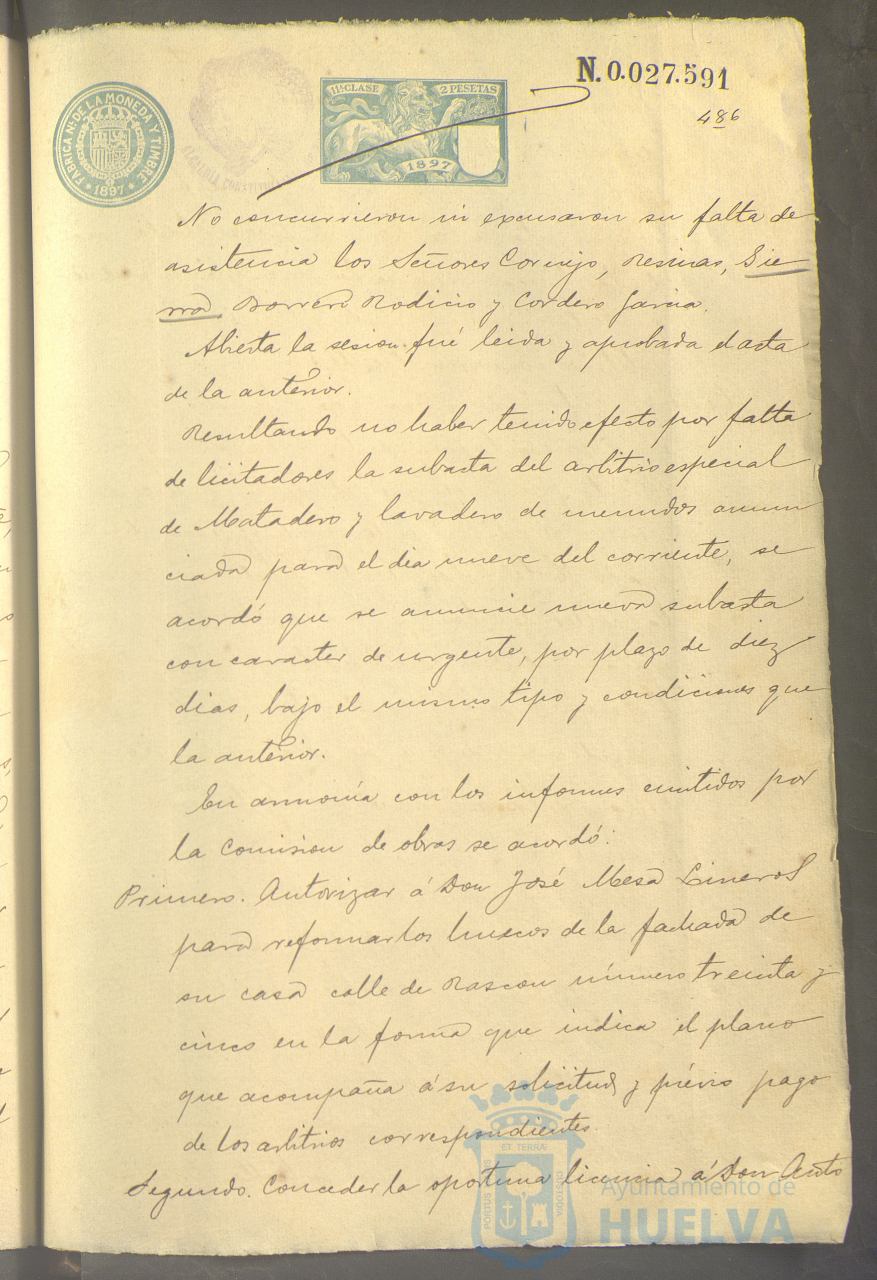 N. 0.027.591
486
FABRICA NAL DE LA MONEDA Y TIMBRE
1897
11ª CLASE 2 PESETAS
1897
ALCALDIA CONSTITU
No concurrieron ni excusaron su falta de
asistencia los Señores Cornejo, Resinas, Sie
rra, Borrero Rodicio y Cordero Garcia.
Abierta la sesion fué leida y aprobada el acta
de la anterior.
Resultando no haber tenido efecto por falta
de licitadores la subasta del arbitrio especial
de Matadero y lavadero de menudos anun
ciada para el dia nueve del corriente, se
acordó que se anuncie nueva subasta
con caracter de urgente, por plazo de diez
dias, bajo el mismo tipo y condiciones que
la anterior.
En armonia con los informes emitidos por
la Comision de obras se acordó:
Primero. Autorizar á Don José Mesa Lineros
para reformar los huecos de la fachada de
su casa calle de Rascon número treinta y
cinco en la forma que indica el plano
que acompaña á su solicitud y prévio pago
de los arbitrios correspondientes.
Segundo. Conceder la oportuna licencia á Don Anto
PORTUS MARIS ET TERRAE CUSTODIA
Ayuntamiento de
HUELVA